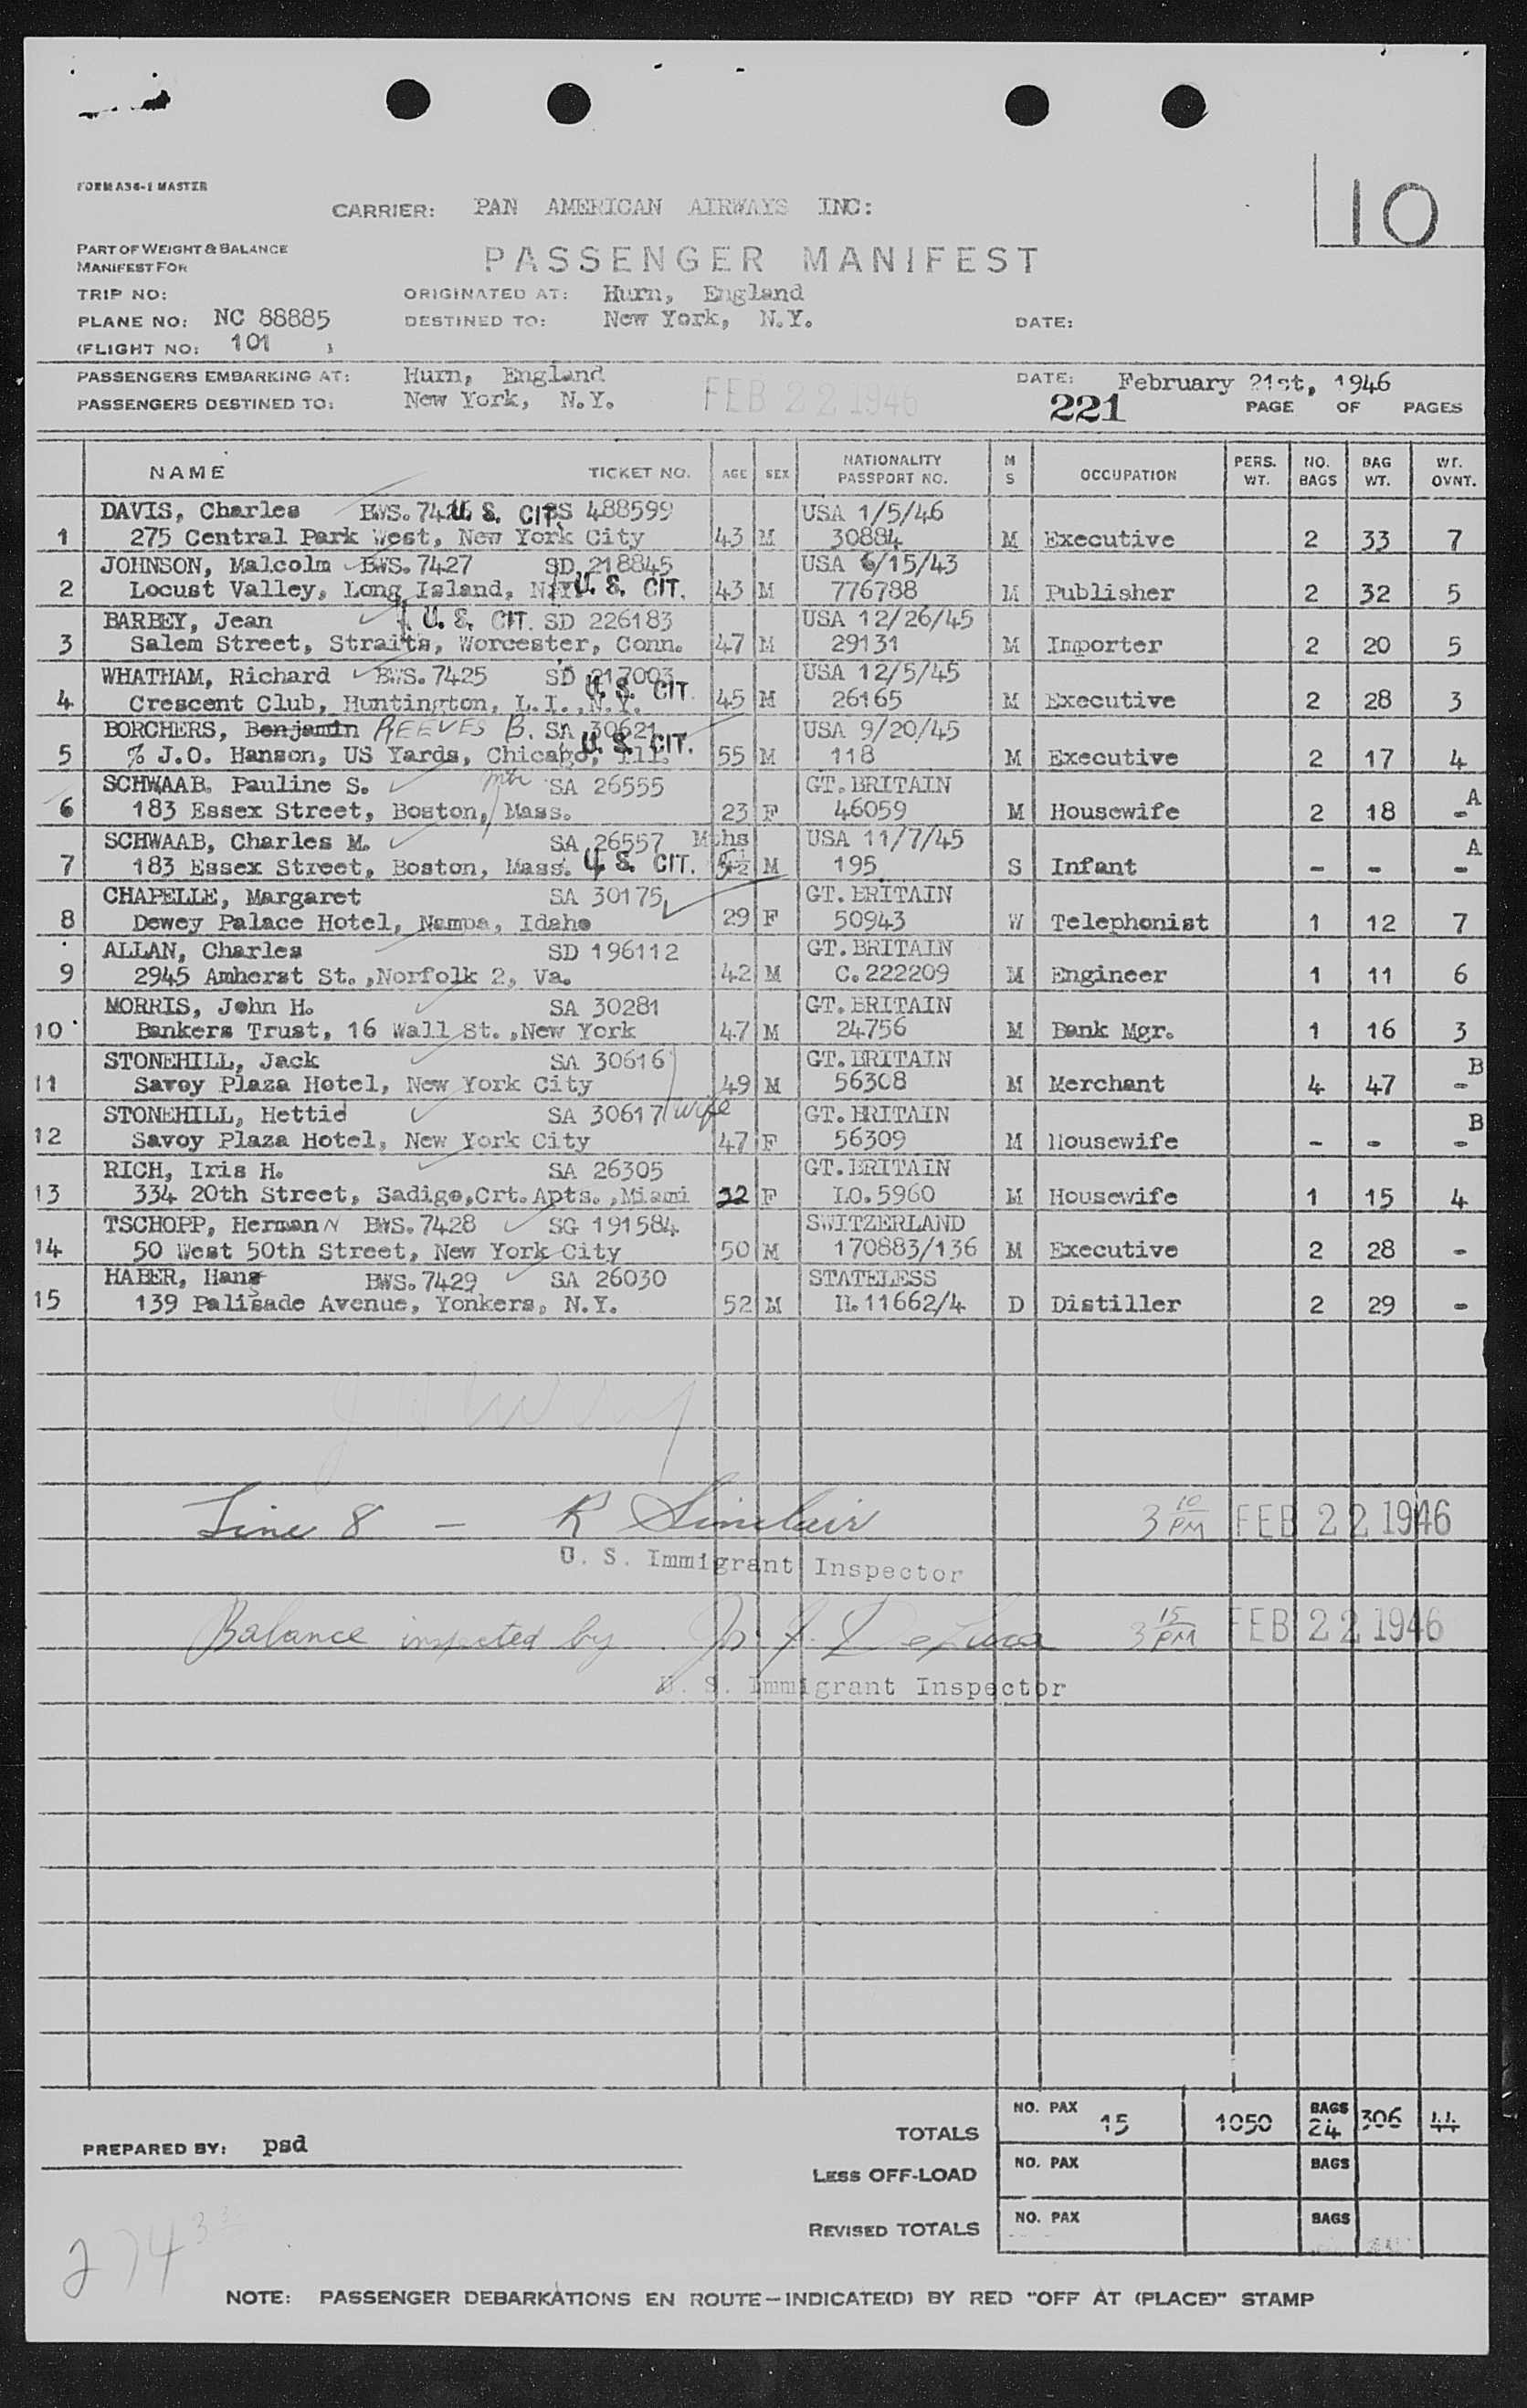 FORM A34-1 MASTER
CARRIER: PAN AMERICAN AIRWAYS INC:
10
PART OF WEIGHT & BALANCE
MANIFEST FOR
PASSENGER MANIFEST
TRIP NO: ORIGINATED AT: Hurn, England
PLANE NO: NC 88885 DESTINED TO: New York, N.Y. DATE:
(FLIGHT NO: 101 )
PASSENGERS EMBARKING AT: Hurn, England DATE: February 21st, 1946
PASSENGERS DESTINED TO: New York, N.Y. FEB 22 1946 221 PAGE OF PAGES
NAME TICKET NO. AGE SEX NATIONALITY PASSPORT NO. M S OCCUPATION PERS. WT. NO. BAGS BAG WT. WT. OVNT.
DAVIS, Charles BWS.7426 U. S. CIT. SS 488599 USA 1/5/46
1 275 Central Park West, New York City 43 M 30884 M Executive 2 33 7
JOHNSON, Malcolm BWS.7427 SD 218845 USA 6/15/43
2 Locust Valley, Long Island, N.Y. U. S. CIT. 43 M 776788 M Publisher 2 32 5
BARBEY, Jean U. S. CIT. SD 226183 USA 12/26/45
3 Salem Street, Straits, Worcester, Conn. 47 M 29131 M Importer 2 20 5
WHATHAM, Richard BWS.7425 SD 217003 USA 12/5/45
4 Crescent Club, Huntington, L.I.,N.Y. U. S. CIT. 45 M 26165 M Executive 2 28 3
BORCHERS, Benjamin REEVES B. SA 30621 USA 9/20/45
5 % J.O. Hanson, US Yards, Chicago, Ill. U. S. CIT. 55 M 118 M Executive 2 17 4
SCHWAAB. Pauline S. mth SA 26555 GT.BRITAIN
6 183 Essex Street, Boston, Mass. 23 F 46059 M Housewife 2 18 A -
SCHWAAB, Charles M. SA 26557 Mths USA 11/7/45
7 183 Essex Street, Boston, Mass. U. S. CIT. 5½ M 195 S Infant - - A -
CHAPELLE, Margaret SA 30175 GT.BRITAIN
8 Dewey Palace Hotel, Nampa, Idaho 29 F 50943 W Telephonist 1 12 7
ALLAN, Charles SD 196112 GT.BRITAIN
9 2945 Amherst St.,Norfolk 2, Va. 42 M C.222209 M Engineer 1 11 6
MORRIS, John H. SA 30281 GT.BRITAIN
10 Bankers Trust, 16 Wall St.,New York 47 M 24756 M Bank Mgr. 1 16 3
STONEHILL, Jack SA 30616 GT.BRITAIN
11 Savoy Plaza Hotel, New York City 49 M 56308 M Merchant 4 47 B -
STONEHILL, Hettie SA 30617 wife GT.BRITAIN
12 Savoy Plaza Hotel, New York City 47 F 56309 M Housewife - - B -
RICH, Iris H. SA 26305 GT.BRITAIN
13 334 20th Street, Sadigo,Crt.Apts.,Miami 22 F I.O.5960 M Housewife 1 15 4
TSCHOPP, Hermann BWS.7428 SG 191584 SWITZERLAND
14 50 West 50th Street, New York City 50 M 170883/136 M Executive 2 28 -
HABER, Hans BWS.7429 SA 26030 STATELESS
15 139 Palisade Avenue, Yonkers, N.Y. 52 M II.11662/4 D Distiller 2 29 -
Line 8 - R Sinclair 3 10 PM FEB 22 1946
U. S. Immigrant Inspector
Balance inspected by J. DeLuca 3 15 PM FEB 22 1946
U. S. Immigrant Inspector
TOTALS NO. PAX 15 1050 BAGS 24 306 44
PREPARED BY: psd
LESS OFF-LOAD NO. PAX BAGS
REVISED TOTALS NO. PAX BAGS
274
NOTE: PASSENGER DEBARKATIONS EN ROUTE—INDICATE(D) BY RED "OFF AT (PLACE)" STAMP